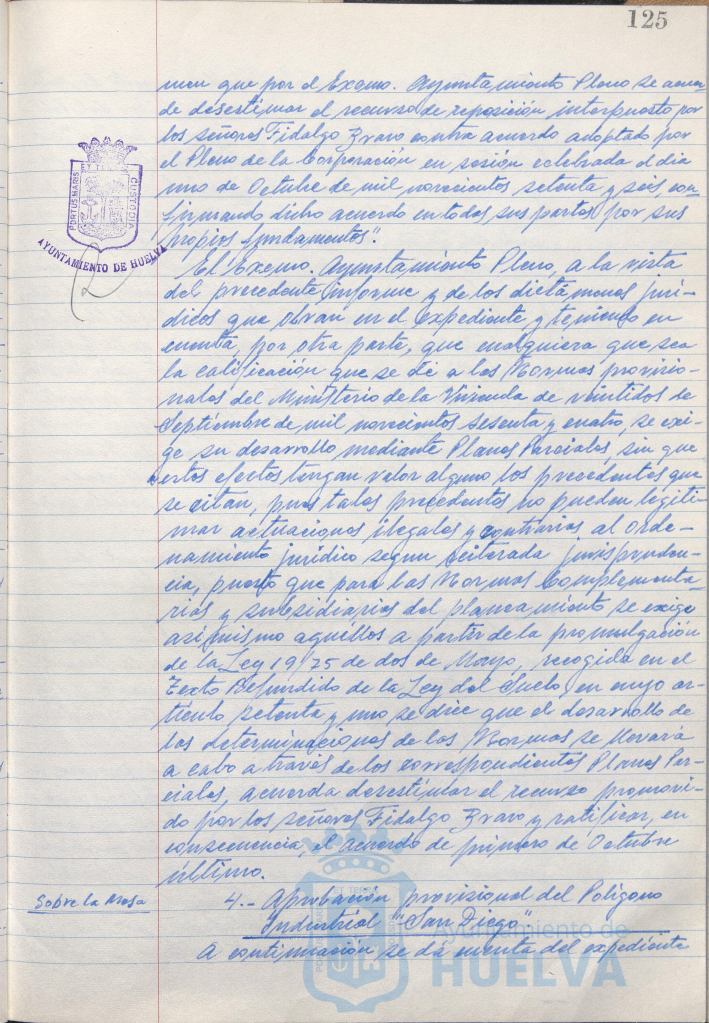 125
men que por el Excmo. Ayuntamiento Pleno se acuer-
de desestimar el recurso de reposición interpuesto por
los señores Fidalgo Bravo contra acuerdo adoptado por
el Pleno de la Corporación en sesión celebrada el dia
uno de Octubre de mil novecientos setenta y seis, con-
firmando dicho acuerdo en todas sus partes por sus
propios fundamentos".
PORTUS MARIS ET TERRAE CUSTODIA
AYUNTAMIENTO DE HUELVA
El Excmo. Ayuntamiento Pleno, a la vista
del precedente informe y de los dictámenes jurí-
dicos que obran en el expediente y teniendo en
cuenta, por otra parte, que cualquiera que sea
la calificación que se dé a las Normas provisio-
nales del Ministerio de la Vivienda de veintidos de
Septiembre de mil novecientos sesenta y cuatro, se exi-
ge su desarrollo mediante Planes Parciales, sin que
estos efectos tengan valor alguno los precedentes que
se citan, pues tales precedentes no pueden legiti-
mar actuaciones ilegales y contrarias al orde-
namiento jurídico segun reiterada jurispruden-
cia, puesto que para las Normas Complementa-
rias y subsidiarias del planeamiento se exige
asimismo aquéllos a partir de la promulgación
de la Ley 19/75 de dos de Mayo, recogida en el
Texto Refundido de la Ley del Suelo, en cuyo ar-
tículo setenta y uno se dice que el desarrollo de
las determinaciones de las Normas se llevará
a cabo a través de los correspondientes Planes Par-
ciales, acuerda desestimar el recurso promovi-
do por los señores Fidalgo Bravo y ratificar, en
consecuencia, el acuerdo de primero de Octubre
último.
Sobre la Mesa
4.- Aprobación provisional del Polígono
Industrial "San Diego"
A continuación se dá cuenta del expediente
Ayuntamiento de
HUELVA